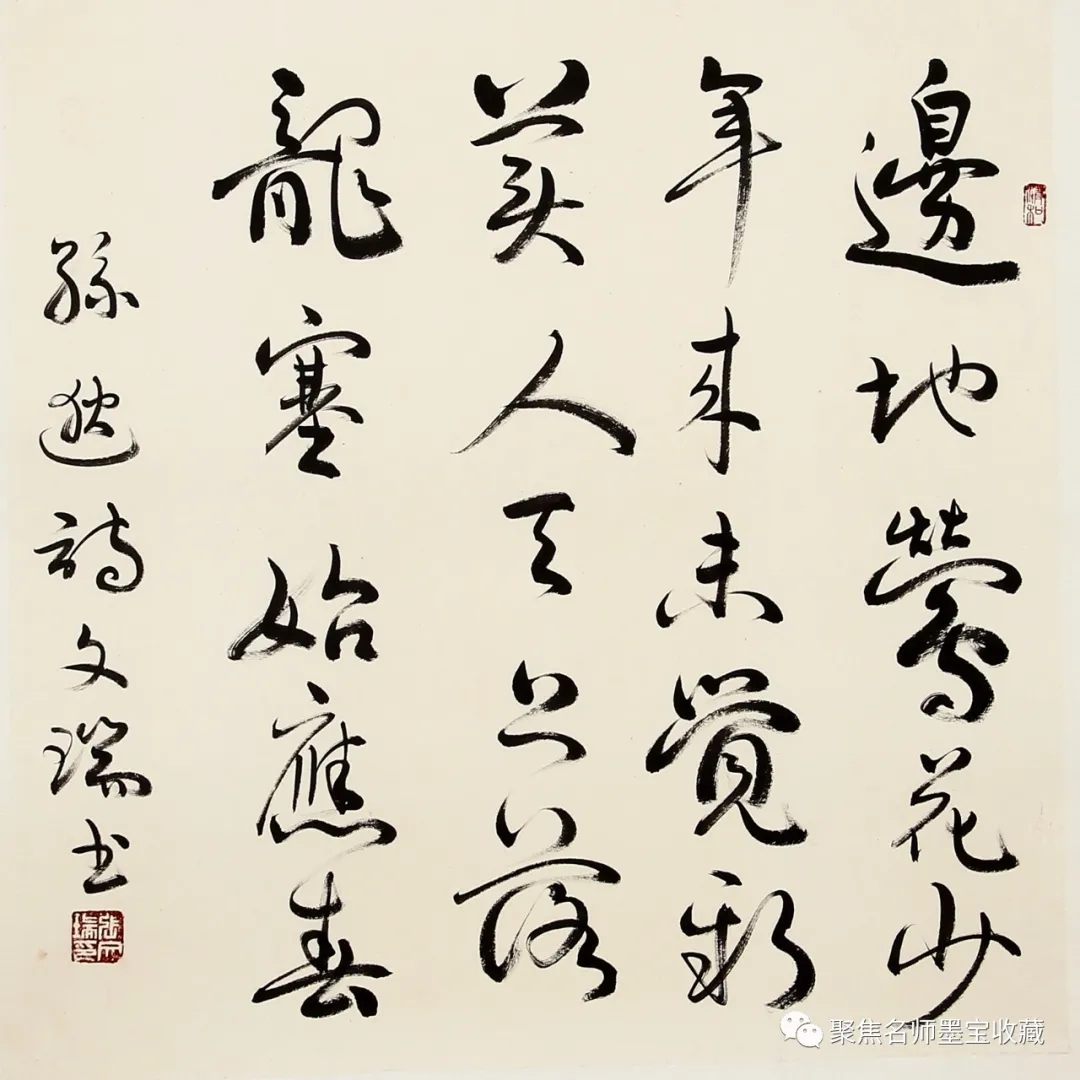 邊地鶯花少
年来未覺新
美人天上落
龍塞始應春
孫逖詩文瑞书
張文瑞印
聚焦名师墨宝收藏